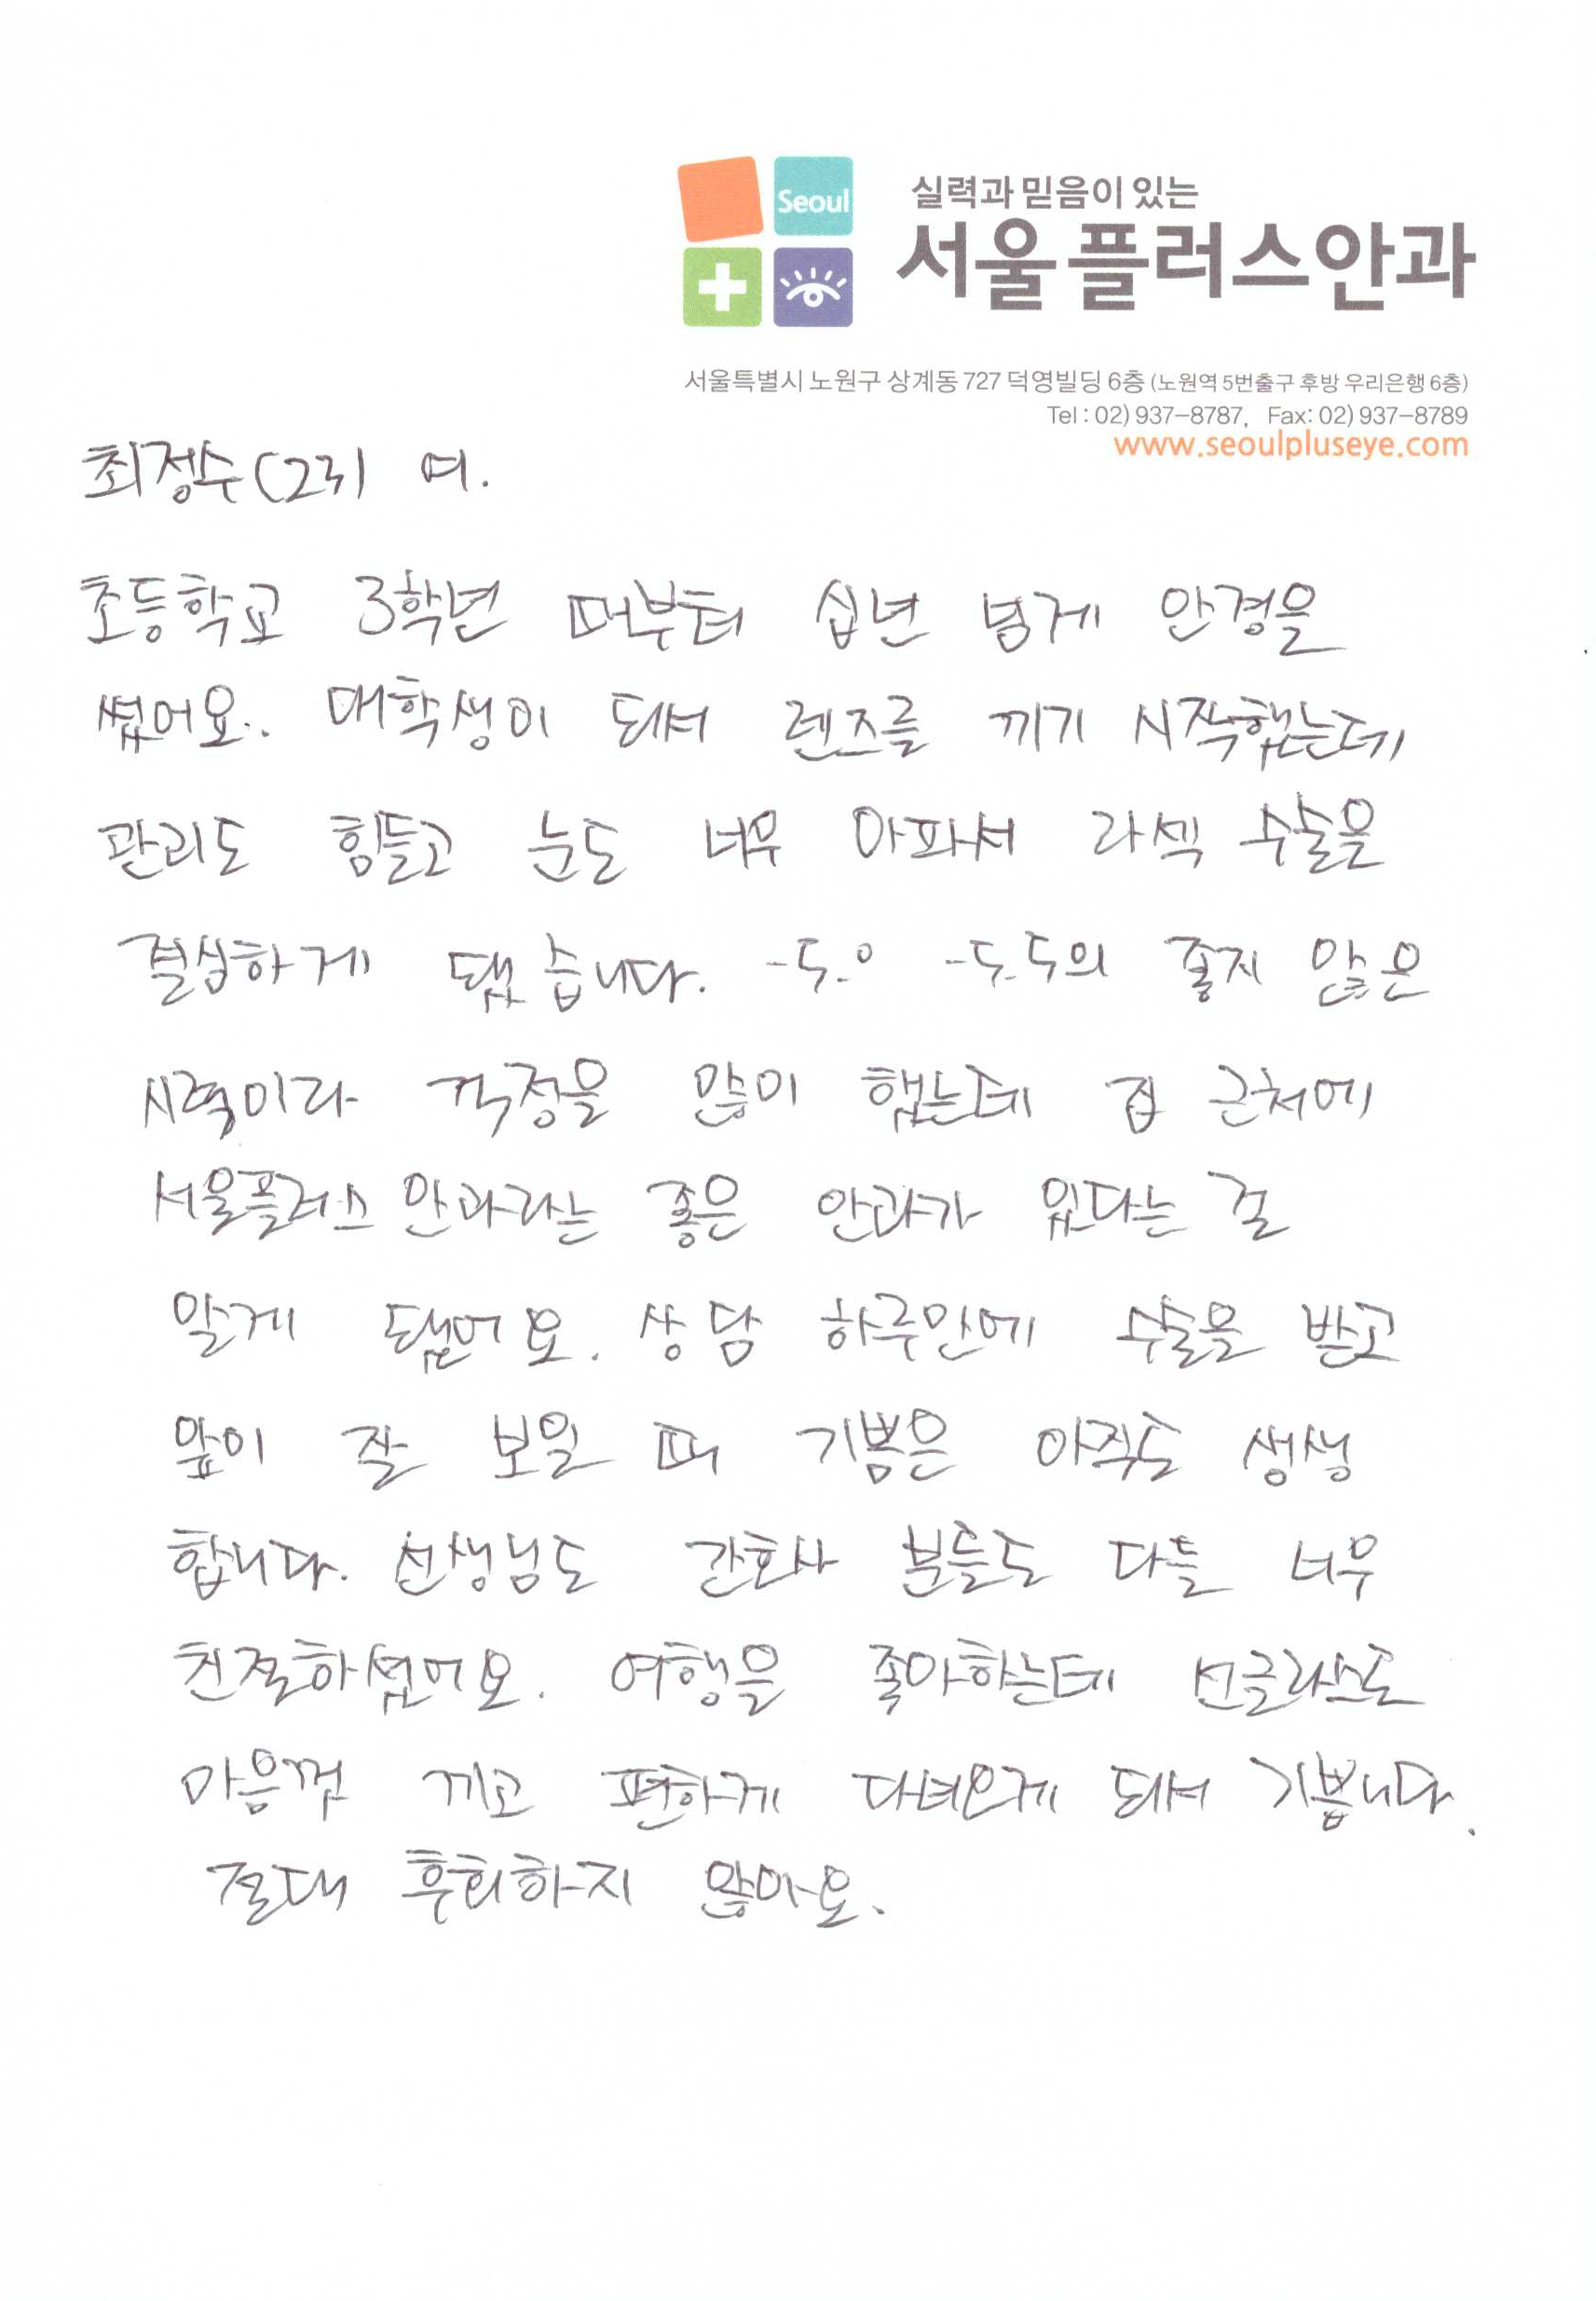 Seoul
실력과 믿음이 있는
서울플러스안과
서울특별시 노원구 상계동 727 덕영빌딩 6층 (노원역 5번출구 후방 우리은행 6층)
Tel : 02) 937-8787, Fax: 02) 937-8789
www.seoulpluseye.com
최정수(23) 여.
초등학교 3학년 때부터 십년 넘게 안경을
썼어요.. 대학생이 되서 렌즈를 끼기 시작했는데
관리도 힘들고 눈도 너무 아파서 라섹 수술을
결심하게 됐습니다. -5.0 -5.5의 좋지 않은
시력이라 걱정을 많이 했는데 집 근처에
서울플러스 안과라는 좋은 안과가 있다는 걸
알게 됐어요. 상담 하루만에 수술을 받고
앞이 잘 보일 때 기쁨은 아직도 생생
합니다. 선생님도 간호사 분들도 다들 너무
친절하셨어요. 여행을 좋아하는데 선글라스도
마음껏 끼고 편하게 다녀오게 되서 기쁩니다.
절대 후회하지 않아요.